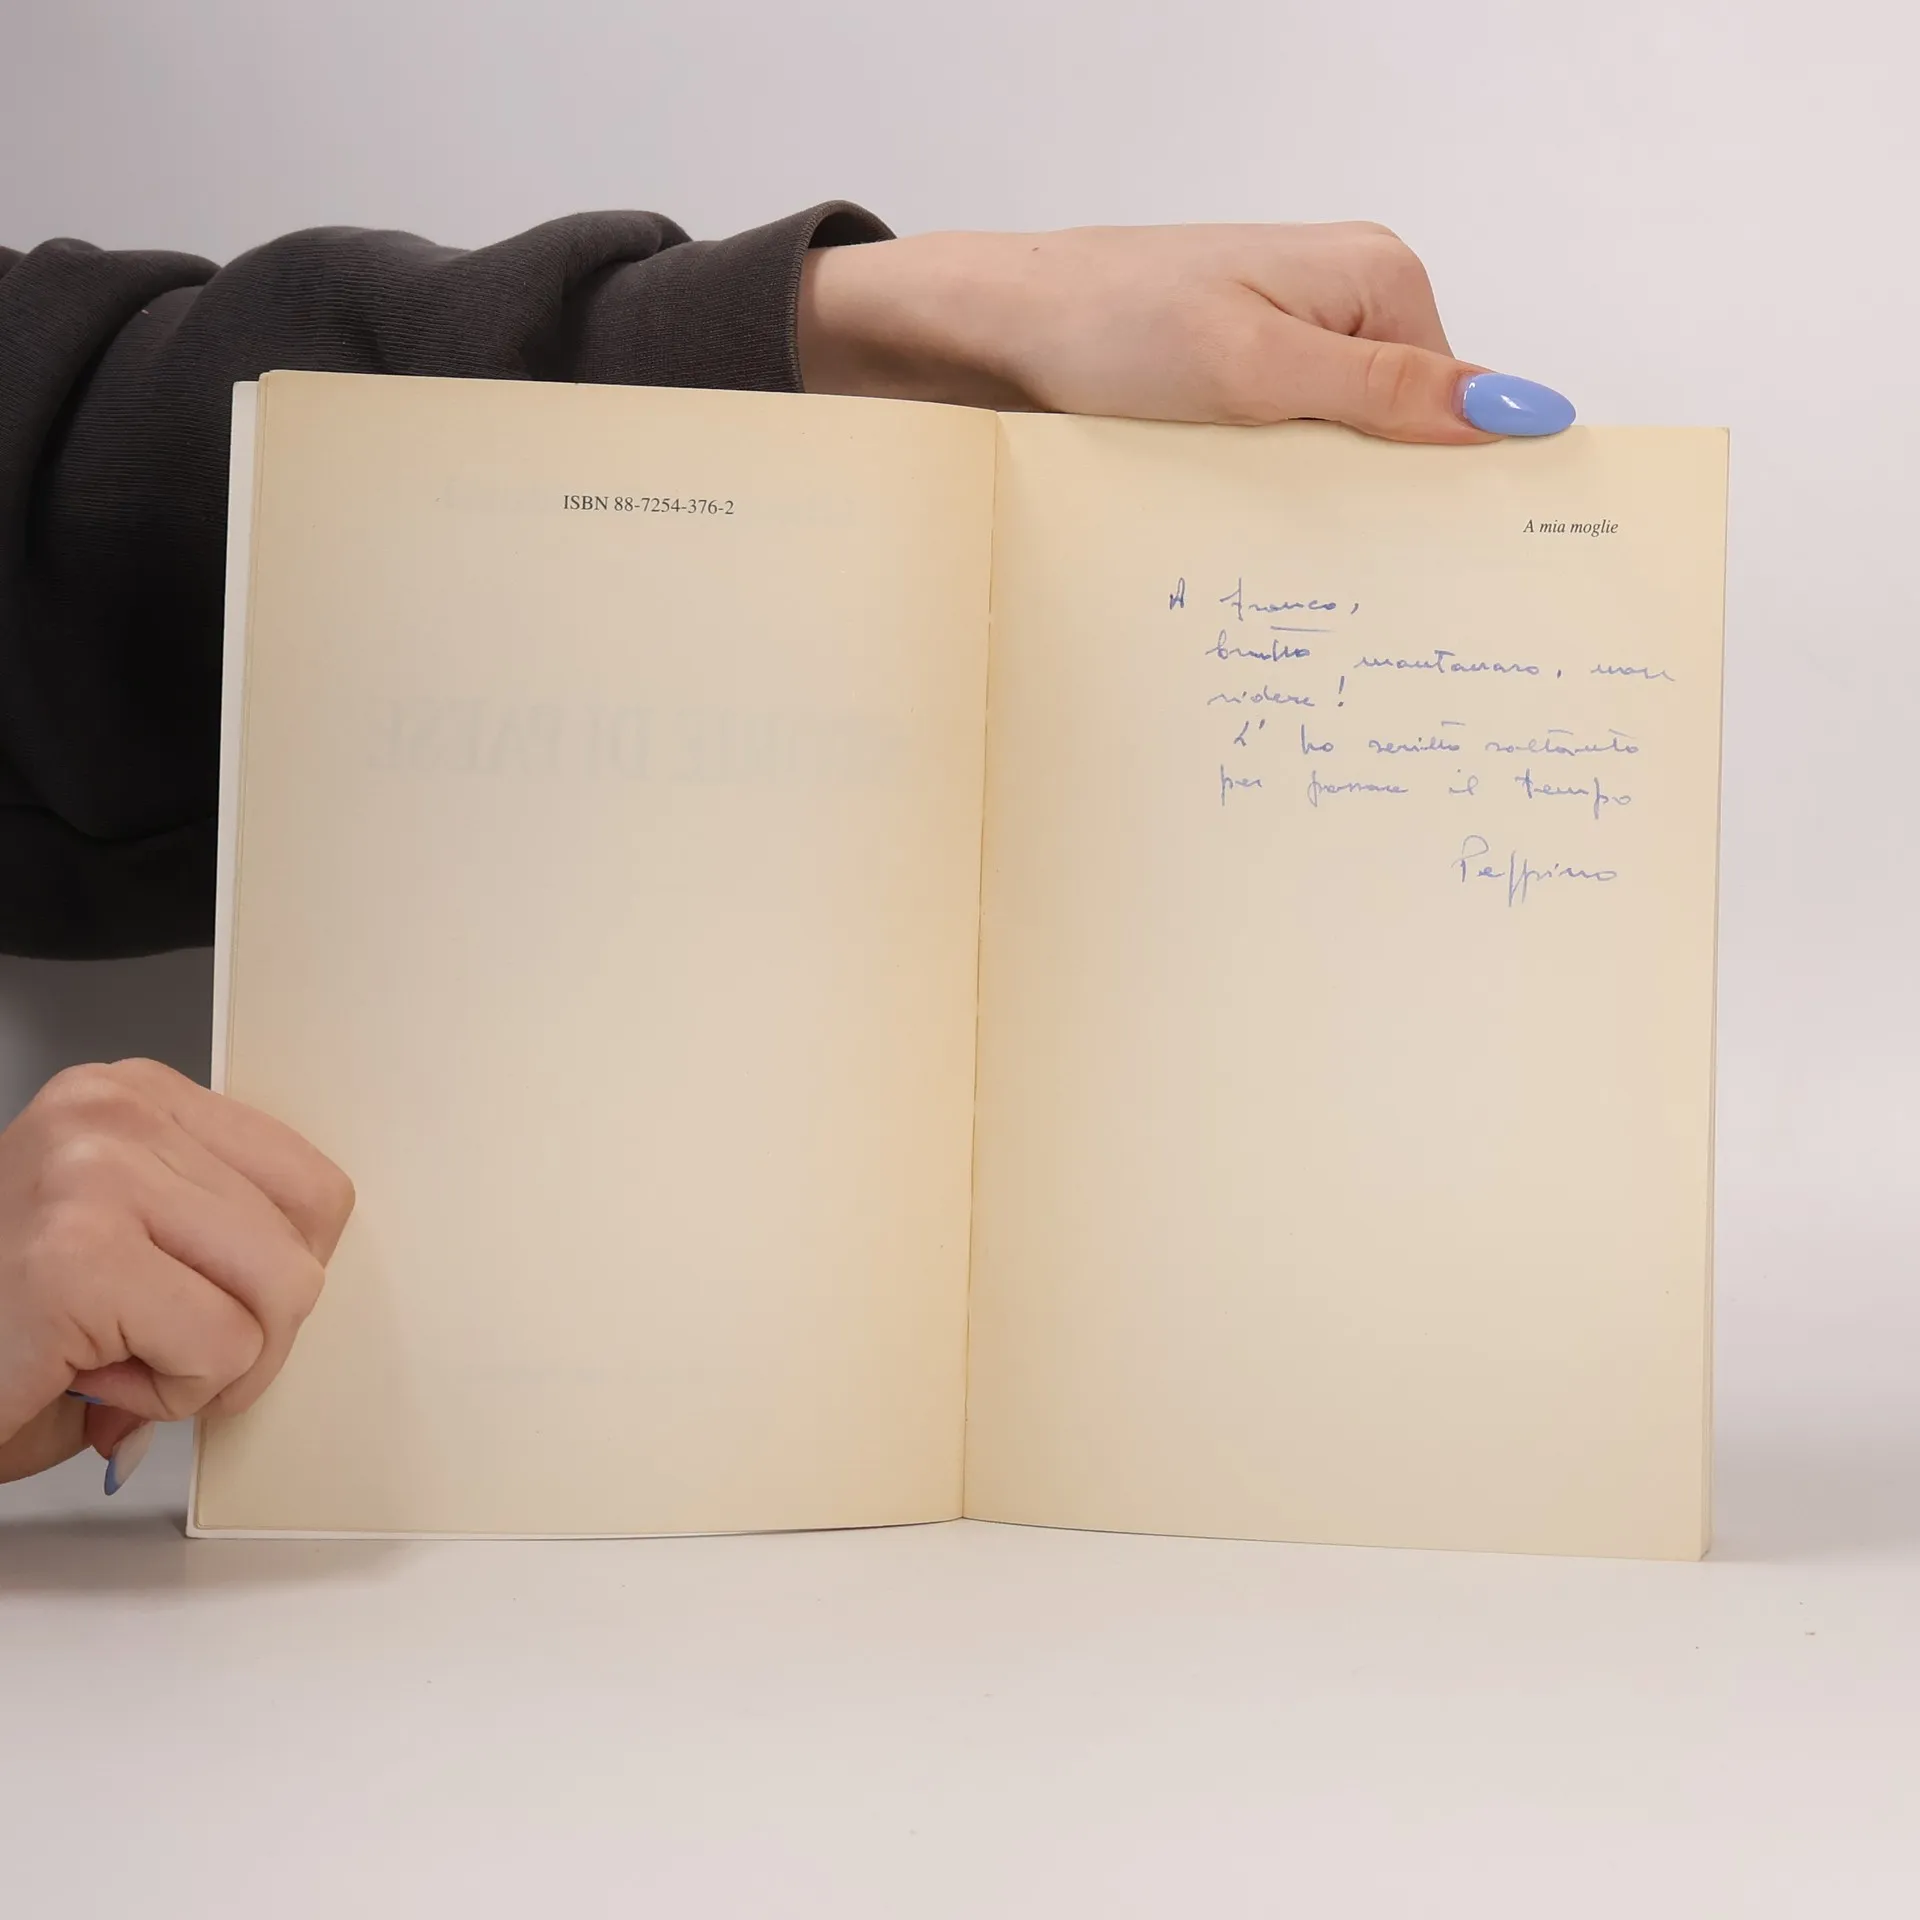 ISBN 88-7254-376-2
A mia moglie
A Franco,
brutto montanaro, non
ridere!
L'ho scritto soltanto
per passare il tempo
Peppino
DI PAESE